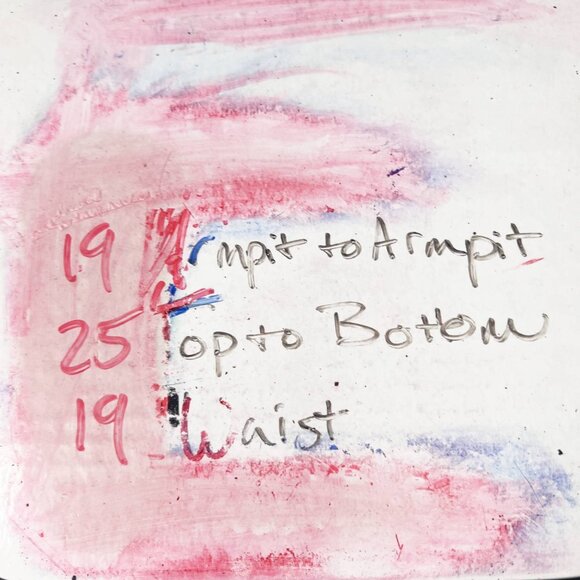 19 Armpit to Armpit
25 Top to Bottom
19 Waist